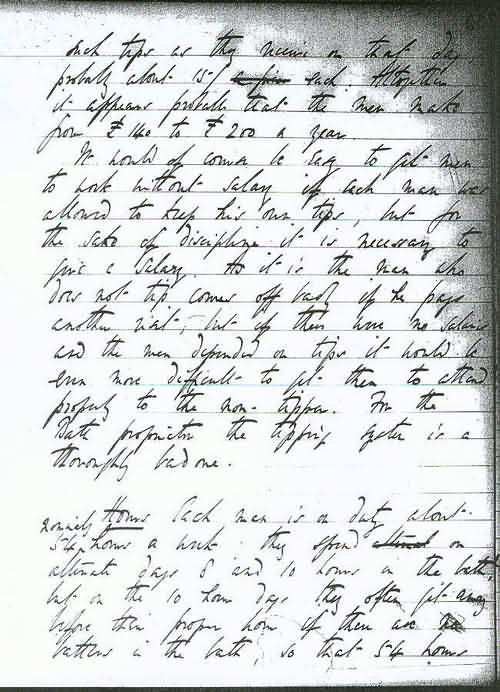 such tips as they receive on that day,
probably about 15/- a piece each. Altogether
it appears probable that the men make
from £140 to £200 a year.
It would of course be easy to get men
to work without salary if each man was
allowed to keep his own tips, but for
the sake of discipline it is necessary to
give a salary. As it is the man who
does not tip comes off badly if he pays
another visit; but if there were no salaries
and the men depended on tips it would be
even more difficult to get them to attend
properly to the non-tipper. For the
Bath proprietor the tipping system is a
thoroughly bad one.
Hours Each man is on duty about
nominally 54 hours a week. they spend on
alternate days 8 and 10 hours in the bath,
but on the 10 hour days they often get away
before their proper hour if there are no
bathers in the bath, so that 54 hours